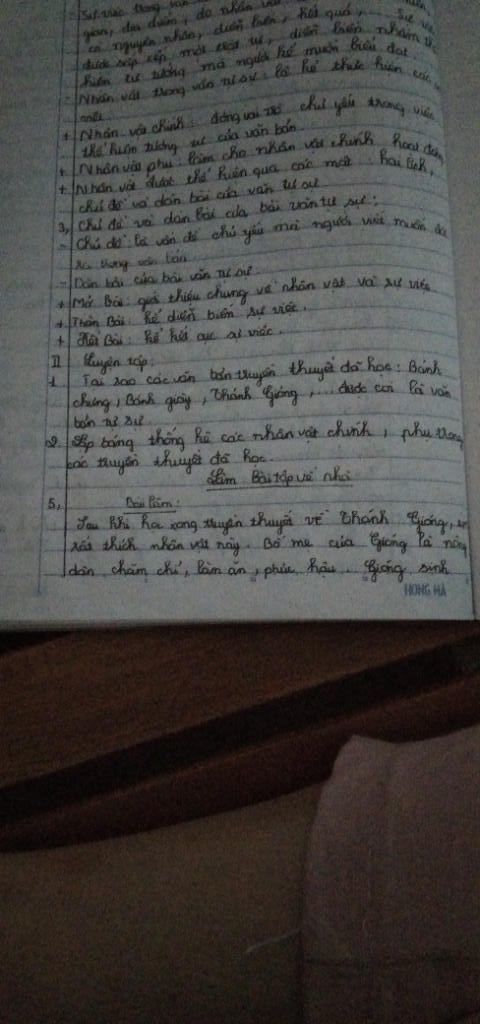 - Sự việc trong văn
gian, địa điểm, do nhân vật
có nguyên nhân, diễn biến, kết quả, ... Sự
được sắp xếp một trật tự, diễn biến nhằm
hiện tư tưởng mà người kể muốn biểu đạt.
- Nhân vật trong văn tự sự: là kẻ thực hiện các
việc.
+ Nhân vật chính: đóng vai trò chủ yếu trong việc
thể hiện tưởng sự của văn bản.
+ Nhân vật phụ: làm cho nhân vật chính hoạt động
+ Nhân vật được thể hiện qua các mặt: lai lịch,
chủ đề và dàn bài của văn tự sự
3, Chủ đề và dàn bài của bài văn tự sự:
- Chủ đề là vấn đề chủ yếu mà người viết muốn
ra trong văn bản
- Dàn bài của bài văn tự sự.
+ Mở Bài: giới thiệu chung về nhân vật và sự việc
+ Thân Bài: kể diễn biến sự việc.
+ Kết Bài: kể kết cục sự việc.
II Luyện tập:
1. Tại sao các văn bản truyền thuyết đã học: Bánh
chưng, Bánh giầy, Thánh Gióng, ... được coi là văn
bản tự sự.
2. Lập bảng thống kê các nhân vật chính, phụ trong
các truyền thuyết đã học.
Làm Bài tập về nhà
5, Bài làm:
Sau khi học xong truyền thuyết về Thánh Gióng, em
rất thích nhân vật này. Bố mẹ của Gióng là nông
dân chăm chỉ, làm ăn, phúc hậu. Gióng sinh
HONG HA